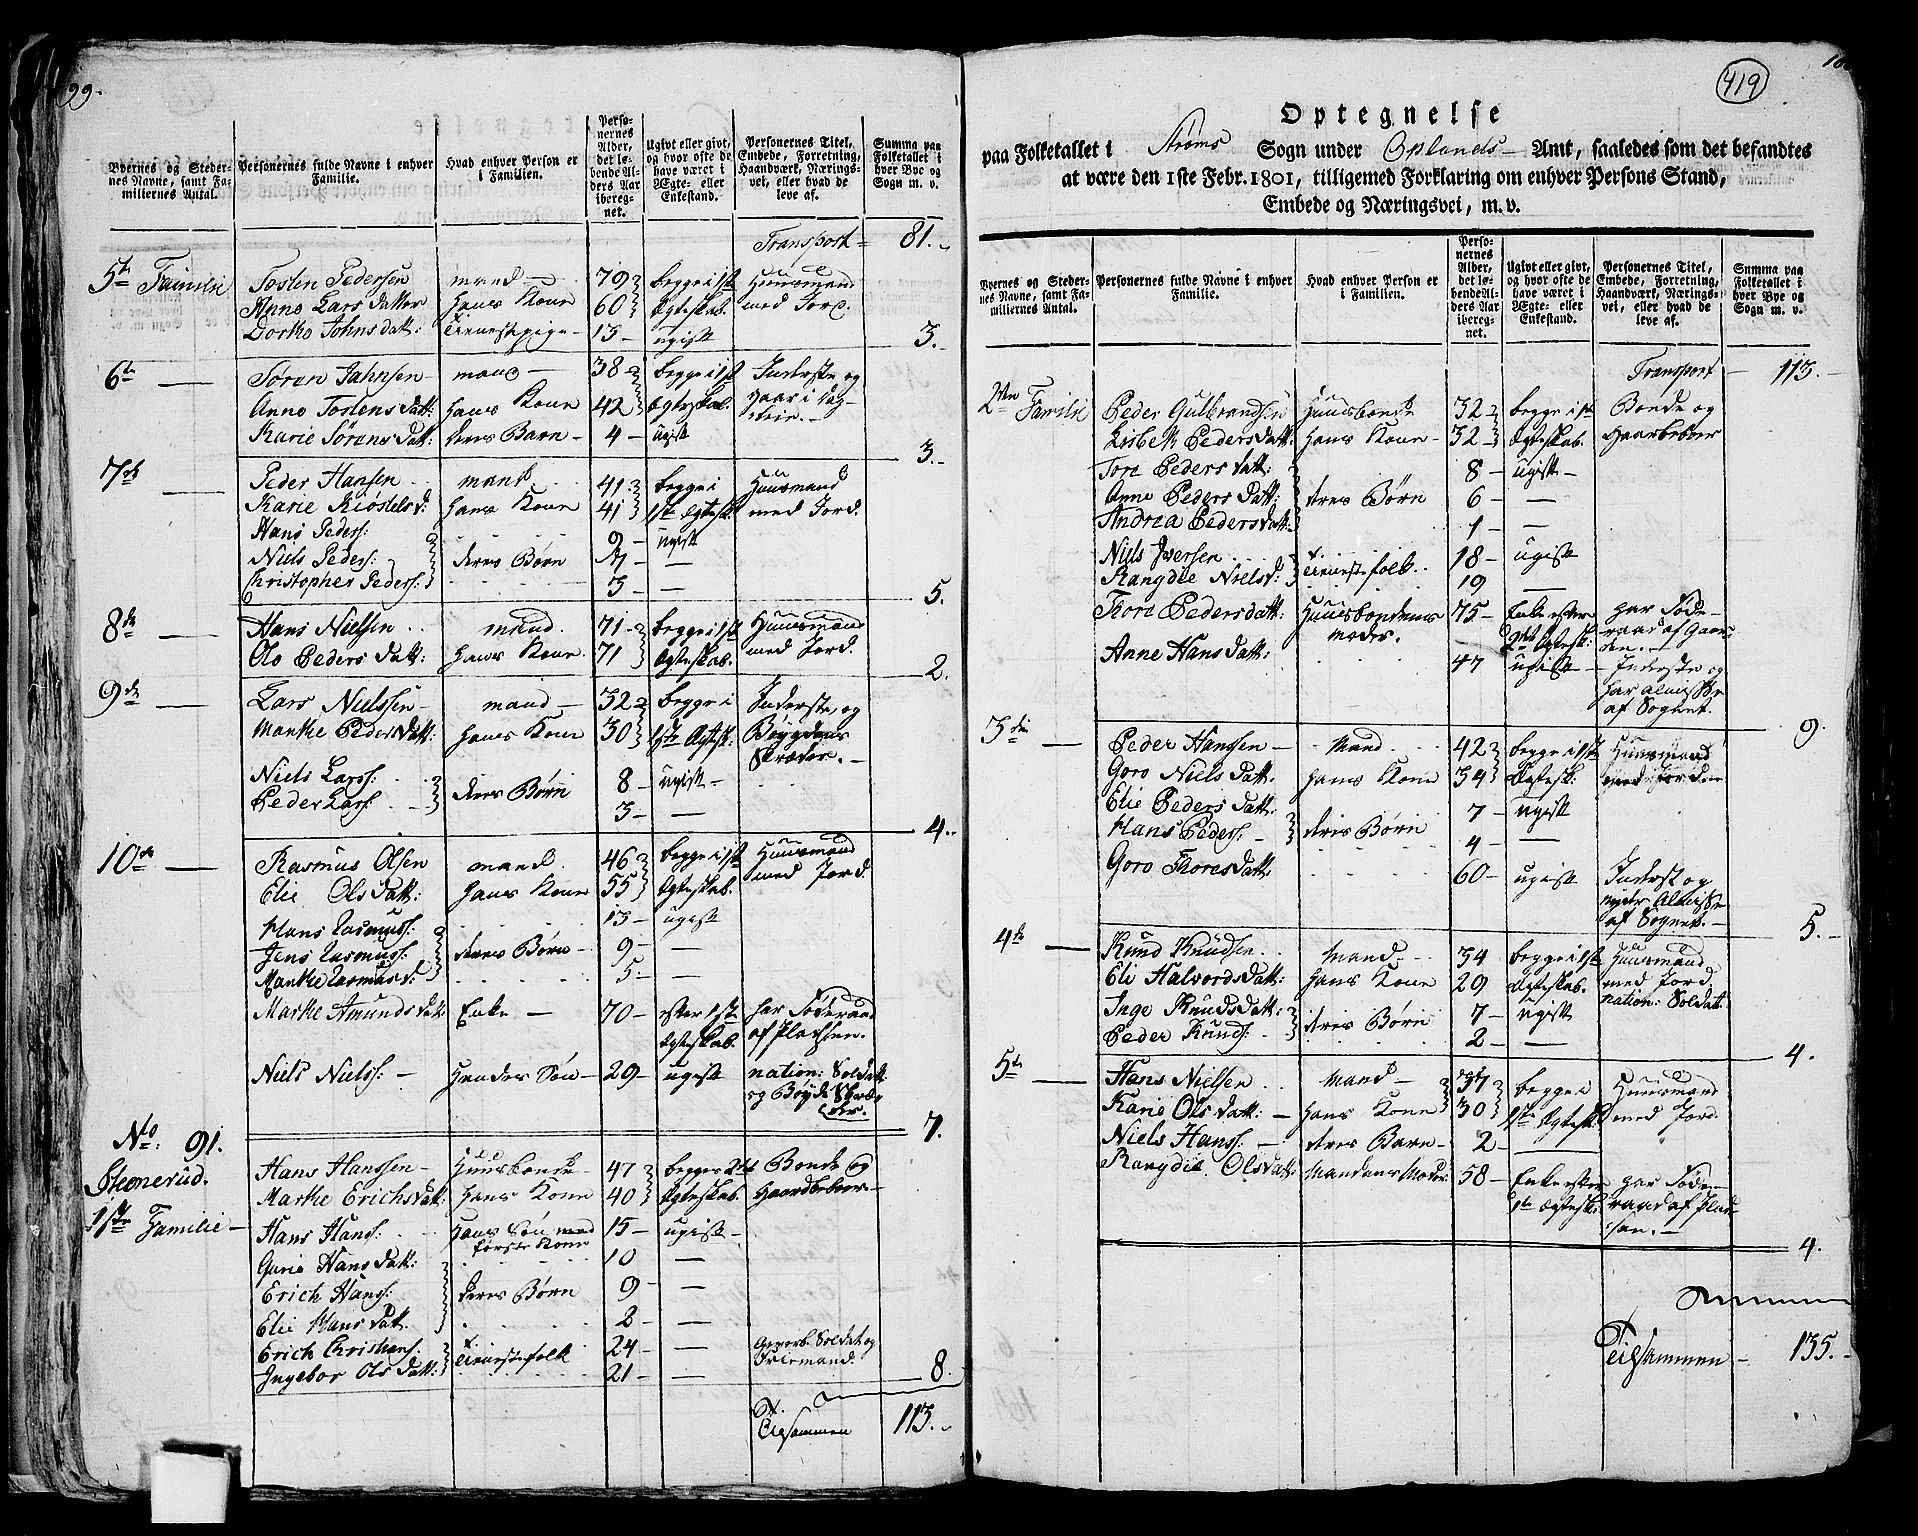 99.
Byernes og Stedernes Navne, samt Familiernes Antal.
Personernes fulde Navne i enhver Familie.
Hvad enhver Person er i Familien.
Personernes Alder, det løbende Alders Aar iberegnet.
Ugivt eller givt, og hvor ofte de have været i Ægte- eller Enkestand.
Personernes Titel, Embede, Forretning, Haandværk, Næringsvei, eller hvad de leve af.
Summa paa Folketallet i hver Bye og Sogn m. v.
Transport 81.
5te Familie Tosten Pedersen mand 79 begge i 1ste Huusmand
Anne Lars datter hans Kone 60 Ægteskab. med Jord.
Dorko Johns datt: tienestepige 13 ugift
3.
6te Søren Jahnsen mand 38 begge i 1st Inderste og
Anne Tostens datt: hans Kone 42 Ægteskab.
Karie Sørens datt: deres Barn 4 ugift
3.
7de Peder Hansen mand 41 begge i Huusmand
Karie Kiøstels d: hans Kone 41 1ste Ægtesk. med Jord.
Hans Peders: 9 ugift
Niels Peders: deres Børn
Christopher Peders: 3
5.
8de Hans Nielsen mand 71 begge i 1st Huusmand
Olo Peders datt: hans Kone 71 Ægteskab. med Jord.
2.
9de Lars Nielssen mand 32 begge i Inderste, og
Marthe Peders datt: hans Kone 30 1ste Ægtesk: Bøygdens
Skræder.
Niels Larss: 8 ugift
Peder Larss: deres Børn 3
4.
10de Rasmus Olsen mand 46 begge i 1st Huusmand
Elie Ols datt: hans Kone 55 Ægteskab. med Jord.
Hans Rasmuss: 13 ugift
Jens Rasmuss: deres Børn 9
Marthe Rasmus d: 5.
Marthe Amunds datt: Enke 70 efter 1ste har Føderaad
Ægteskab. af Pladsen.
Niels Nielss: Hendes Søn 29 ugift nation: Soldat
og Bøyde Skræder.
7.
No: 91.
Steenerud.
Hans Hanssen Huusbonde 47 begge 2det Bonde og
Marthe Erichs datt: hans Kone 40 Ægteskab. Gaardbeboer
1ste Familie Hans Hanss: Hans Søn med 15 ugift
første Kone
Gurie Hans datt: 10
Erich Hanss: deres Børn 9
Elie Hans datt. 2
Erich Christians: tienestefolk 24 Soldat og
Ingebor Ols datt: 21
8.
Tilsammen 113.
419
Optegnelse
paa Folketallet i Strøms Sogn under Oplands Amt, saaledes som det befandtes
at være den 1ste Febr. 1801, tilligemed Forklaring om enhver Persons Stand,
Embede og Næringsvei, m. v.
Byernes og Stedernes Navne, samt Familiernes Antal.
Personernes fulde Navne i enhver Familie.
Hvad enhver Person er i Familien.
Personernes Alder, det løbende Alders Aar iberegnet.
Ugivt eller givt, og hvor ofte de have været i Ægte- eller Enkestand.
Personernes Titel, Embede, Forretning, Haandværk, Næringsvei, eller hvad de leve af.
Summa paa Folketallet i hver Bye og Sogn m. v.
Transport 113.
2den Familie Peder Gulbrandsen Huusbonde 32 begge i 1st Bonde og
Lisbeth Peders datt: hans Kone 32 Ægteskab. Gaardbeboer
Tore Peders datt: 8 ugift
Anne Peders datt: deres Børn 6
Andrea Peders datt: 1
Niels Iversen tienestefolk 18 ugift
Rangdie Niels d: 19
Thore Peders datt: Huusbondens 75 Enke efter har Føde-
moder. 2det Ægtesk: raad af Gaarden.
Anne Hans datt: 47 ugift Inderste og
har Almisse
af Sognet.
9.
3die Peder Hanssen Mand 42 begge i 1ste Huusmand
Goro Niels datt: hans Kone 34 Ægtesk: med Jorden
Elie Peders datt: 7 ugift
Hans Peders: deres Børn 4
Goro Thores datt: 60 ugift Inderst og
nyder Almisse
af Sognet.
5.
4de Knud Knudsen Mand 34 begge i 1ste Huusmand
Eli Halvords datt: hans Kone 29 Ægteskab. med Jord.
Inge Knuds datt: 7 ugift nation: Soldat
Peder Knuds: deres Børn 2
4.
5te Hans Nielsen Mand 37 begge i Huusmand
Karie Ols datt: hans Kone 30 1ste Ægtesk med Jord.
Niels Hanss: deres Barn 2
Rangdie Ols datt: Mandens Moder 58 Enke efter har Føde-
1ste Ægtesk: raad af Pladsen.
4.
Tilsammen 135.